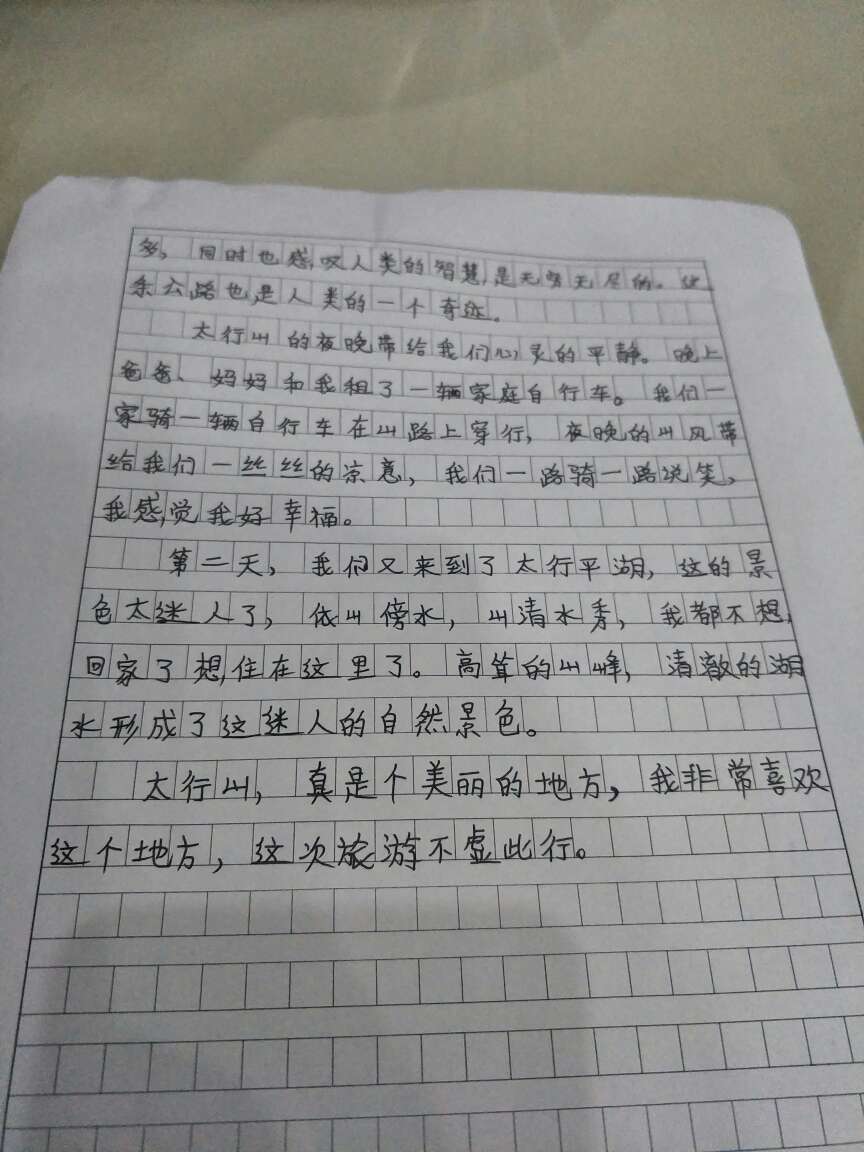 多，同时也感叹人类的智慧，是无穷无尽的。这
条公路也是人类的一个奇迹。
太行山的夜晚带给我们心灵的平静。晚上
爸爸、妈妈和我租了一辆家庭自行车。我们一
家骑一辆自行车在山路上穿行，夜晚的山风带
给我们一丝丝的凉意，我们一路骑一路说笑，
我感觉我好幸福。
第二天，我们又来到了太行平湖，这的景
色太迷人了，依山傍水，山清水秀，我都不想
回家了想住在这里了。高耸的山峰，清澈的湖
水形成了这迷人的自然景色。
太行山，真是个美丽的地方，我非常喜欢
这个地方，这次旅游不虚此行。